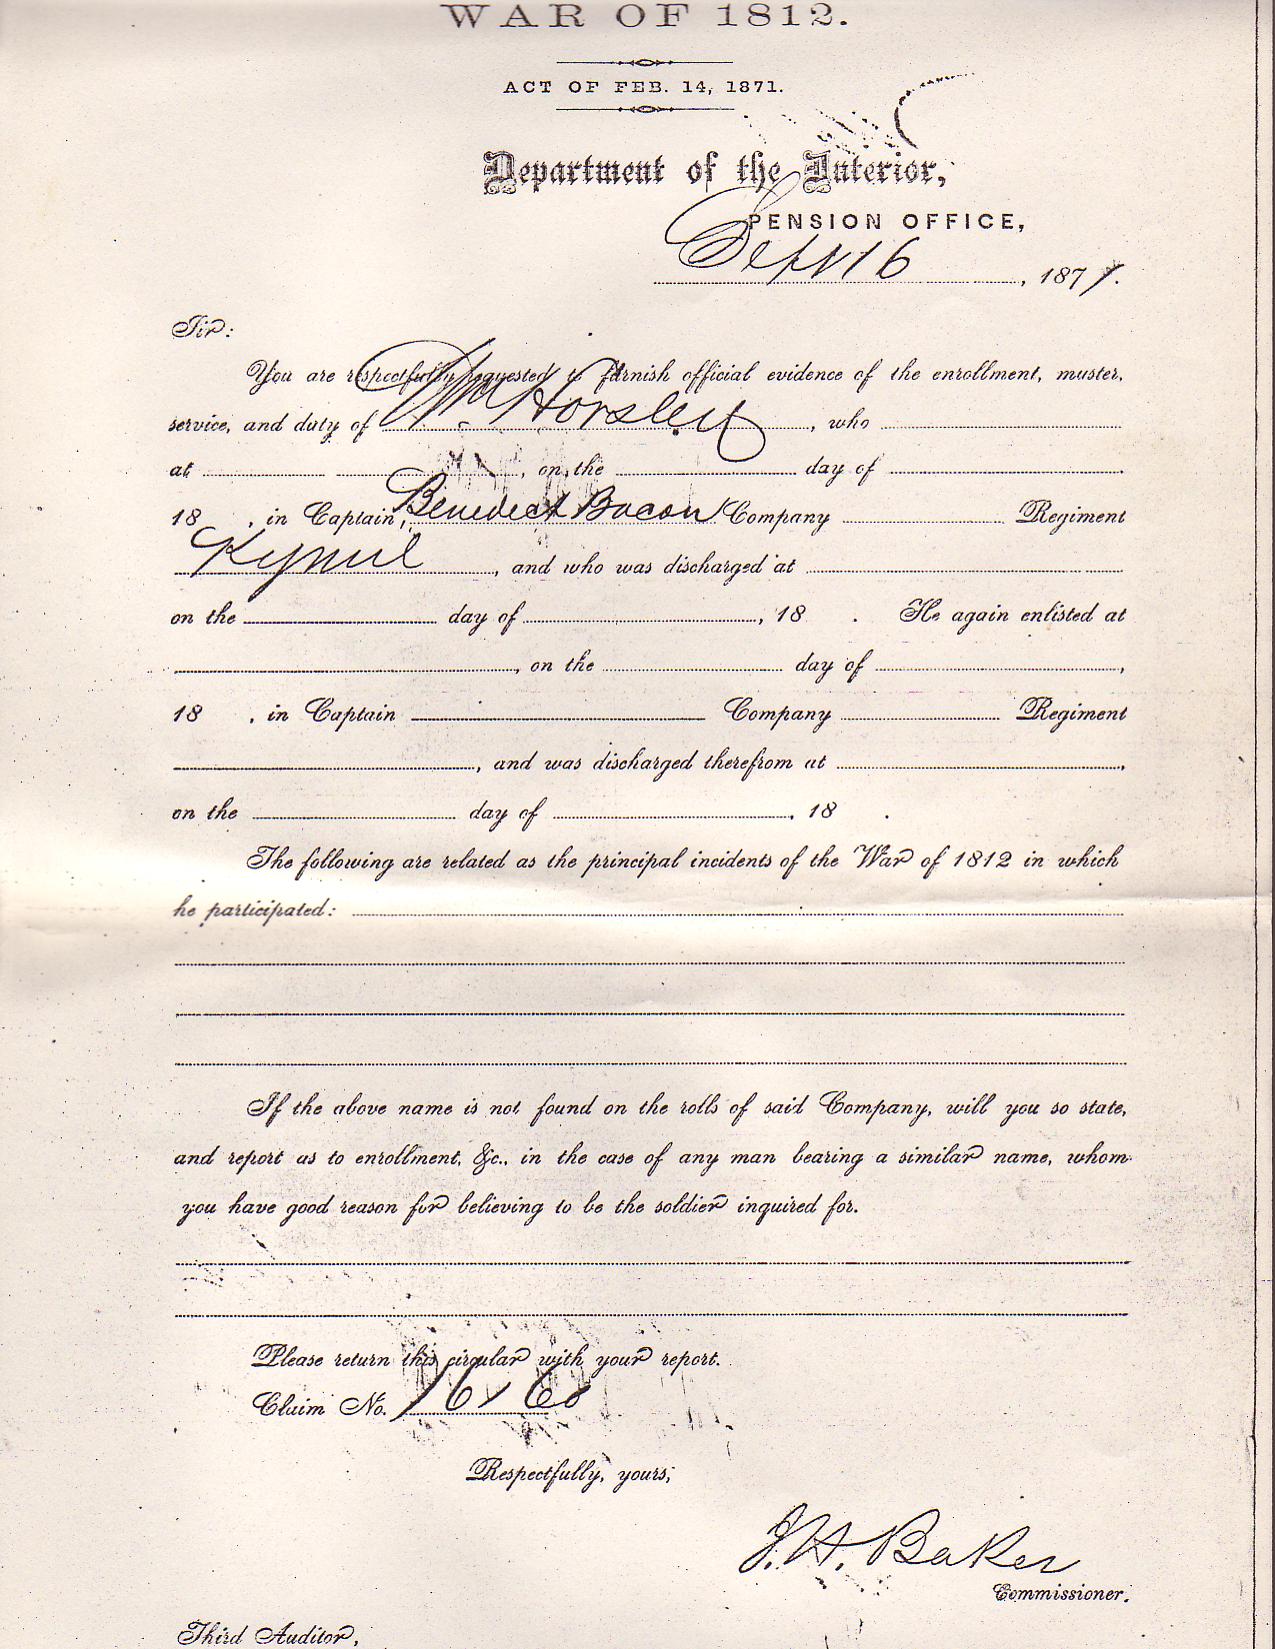 WAR OF 1812.
ACT OF FEB. 14, 1871.
Department of the Interior,
PENSION OFFICE,
Sept 16, 1871.
Sir:
You are respectfully requested to furnish official evidence of the enrollment, muster,
service, and duty of Wm Horsley, who
at , on the day of
18 , in Captain Benedict Bacon Company Regiment
Ky Mil, and who was discharged at
on the day of , 18 . He again enlisted at
, on the day of ,
18 , in Captain Company Regiment
, and was discharged therefrom at ,
on the day of , 18 .
The following are related as the principal incidents of the War of 1812 in which
he participated:
If the above name is not found on the rolls of said Company, will you so state,
and report as to enrollment, &c., in the case of any man bearing a similar name, whom
you have good reason for believing to be the soldier inquired for.
Please return this circular with your report.
Claim No.
Respectfully, yours,
J. H. Baker
Commissioner.
Third Auditor,